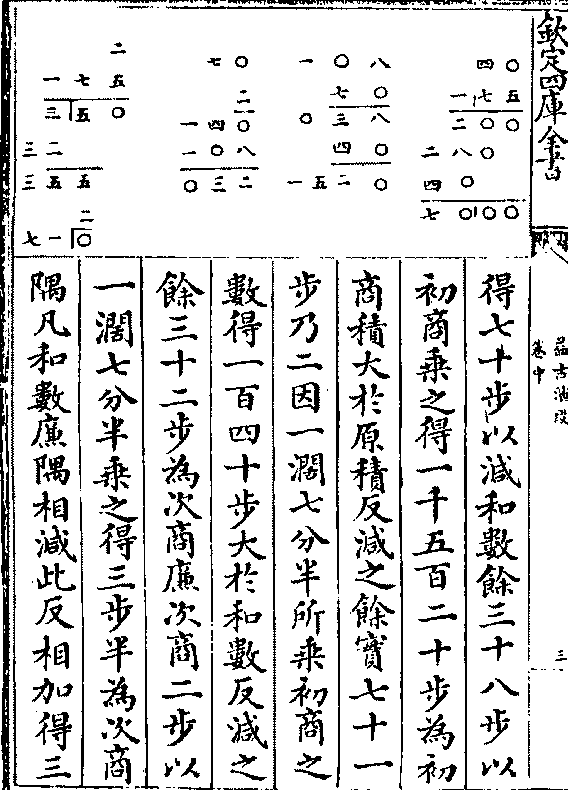 欽定四庫全書
益古演段
卷中
三
四〇
一七五
二〇〇
二八〇
四〇
七〇〇〇
一〇八
七〇
〇三八
四〇
一五二〇
七〇
二
一四〇
一〇八
〇三二
二
一七五
三五〇
三二
三五五
二
七一〇
得七十步以減和數餘三十八步以
初商乘之得一千五百二十步為初
商積大於原積反減之餘實七十一
步乃二因一濶七分半所乘初商之
數得一百四十步大於和數反減之
餘三十二步為次商廉次商二步以
一濶七分半乘之得三步半為次商
隅凡和數廉隅相減此反相加得三